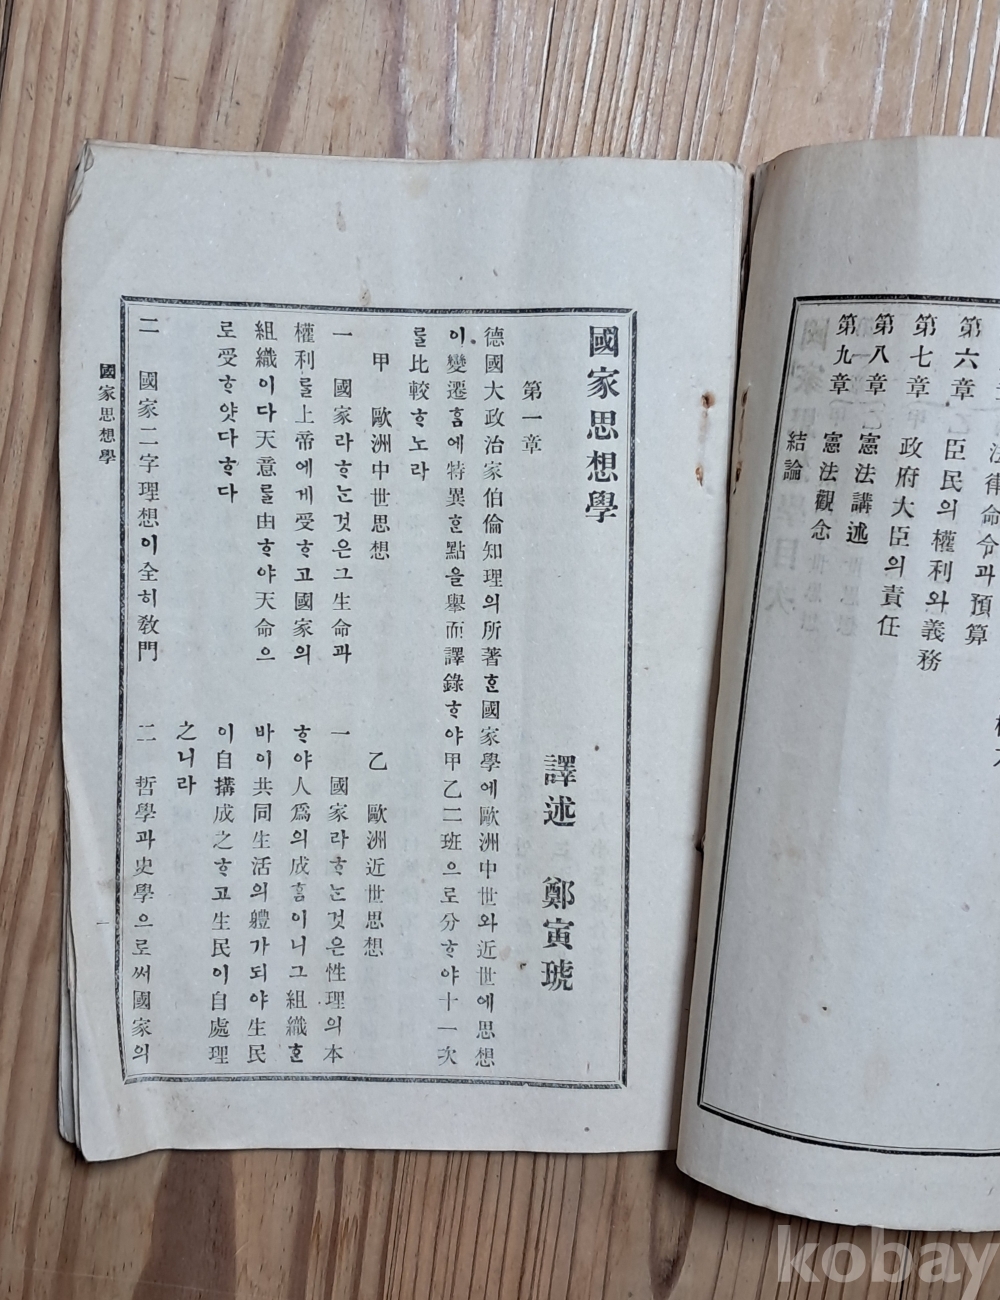 法律命令과預算
第六章 臣民의權利와義務
第七章 政府大臣의責任
第八章 憲法講述
第九章 憲法觀念
結論
國家思想學
譯述 鄭寅琥
第一章
德國大政治家伯倫知理의所著ᄒᆞᆫ國家學에歐洲中世와近世에思想
이變遷ᄒᆞᆷ에特異ᄒᆞᆫ點을擧而譯錄ᄒᆞ야甲乙二班으로分ᄒᆞ야十一次
를比較ᄒᆞ노라
甲 歐洲中世思想
一 國家라ᄒᆞᄂᆞᆫ것은그生命과
權利를上帝에게受ᄒᆞ고國家의
組織이다天意를由ᄒᆞ야天命으
로受ᄒᆞ얏다ᄒᆞ다
二 國家二字理想이全히敎門
乙 歐洲近世思想
一 國家라ᄒᆞᄂᆞᆫ것은性理의本
ᄒᆞ야人爲의成ᄒᆞᆷ이니그組織ᄒᆞᆫ
바이共同生活의軆가되야生民
이自搆成之ᄒᆞ고生民이自處理
之니라
二 哲學과史學으로써國家의
國家思想學
一
kobay